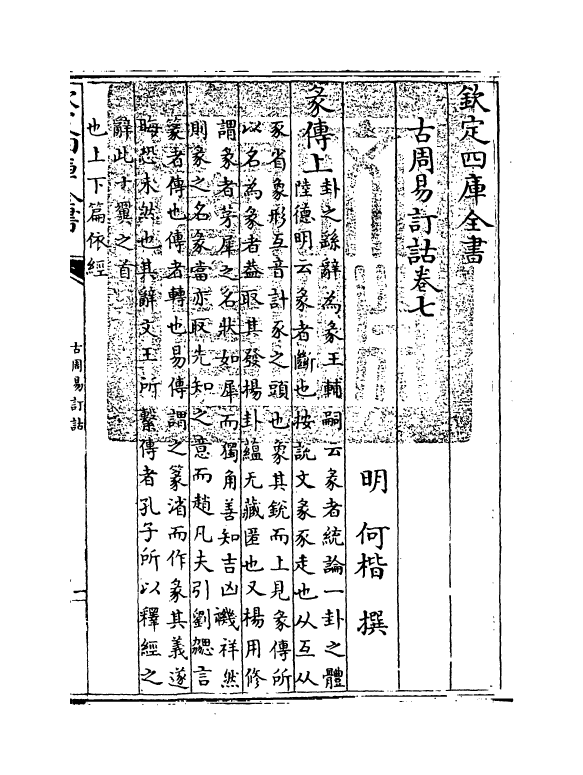 欽定四庫全書
古周易訂詁卷七
明 何楷 撰
彖傳上
卦之繇辭為彖王輔嗣云彖者統論一卦之體
陸德明云彖者斷也按說文彖豕走也从互从
豕省象形互音計豕之頭也象其銳而上見彖傳所
以名為彖者葢取其發揚卦蘊无藏匿也又楊用修
謂彖者茅犀之名狀如犀而獨角善知吉凶禨祥然
則彖之名彖當亦取先知之意而趙凡夫引劉勰言
篆者傳也傳者轉也易傳謂之篆渻而作彖其義遂
晦恐未然也其辭文王所繫傳者孔子所以釋經之
辭此十翼之首
也上下篇依經
古周易訂詁
一